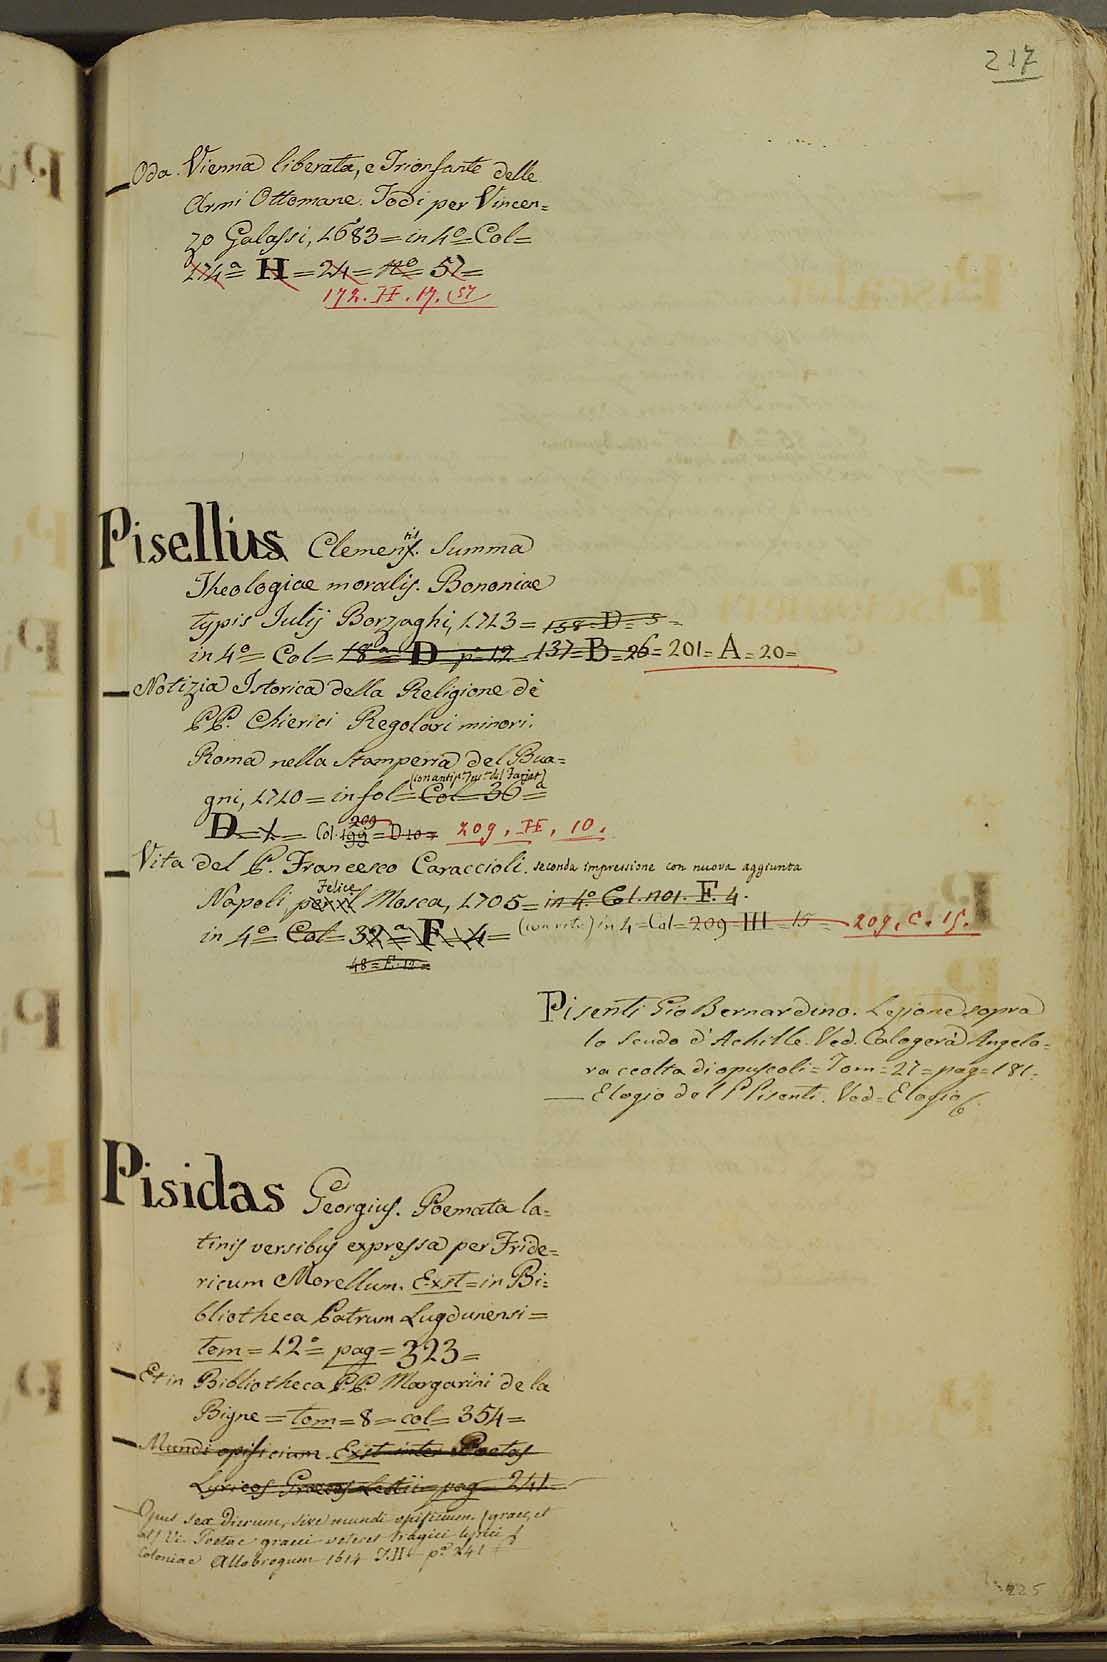 217
Oda. Vienna liberata, e Trionfante delle
Armi Ottomane. Todi per Vincen=
zo Galassi, 1683 = in 4º = Col =
174ª = H = 24 = nº = 57 =
172. H. 17. (57
Pisellius Clemens. Summa
Theologicæ moralis. Bononiæ
typis Iulij Borzaghi, 1713 = 158. D = 5 =
in 4º = Col = 18ª = D = pº 12 = 137 = B = 26 = 201 = A = 20 =
Notizia Istorica della Religione dè
PP. Chierici Regolari minori.
Roma nella Stamperia del Bua=
(con antip.
gni, 1710 = in fol = Col = 36ª =
D = 1 = Col. 199 209 = D 10 = 209. H. 10.
Vita del P. Francesco Caraccioli. seconda impressione con nuova aggiunta
Napoli per il Felice Mosca, 1705 = in 4º. Col. 201. F. 4.
in 4º = Col = 32ª = F = 4 = (con ritr.) in 4 = Col = 209 = III = 15 = 209. C. 15.
48 = E. 12 =
Pisenti Gio Bernardino. Lezione sopra
lo Scudo d'Achille. Ved. Calogerà Angelo =
raccolta di opuscoli = Tom = 27 = pag = 181 =
Elogio del P Pisenti. Ved = Elogio 6.
Pisidas Georgius. Poemata la=
tinis versibus expressa per Fride=
ricum Morellum. Exst = in Bi=
bliotheca Patrum Lugdunensi =
tom = 12º = pag = 323 =
Et in Bibliotheca P.P. Margarini de la
Bigne = tom = 8 = col = 354 =
Mundi opificium. Exst inter Poetas
Lyricos Græcos Lectii = pag = 241 =
Opus sex Dierum, sive mundi opificium. (græc, et
Poetae graeci veteres tragici lyrici
Coloniae Allobrogum 1614 T. II. pº 241
225